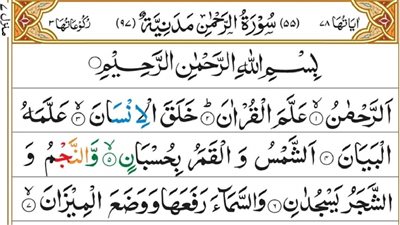 اٰیَاتُهَا ۷۸ (۵۵) سُوْرَةُ الرَّحْمٰنِ مَدَنِيَّةٌ (۹۷) رُكُوْعَاتُهَا ۳
منزل ۷
بِسْمِ اللّٰهِ الرَّحْمٰنِ الرَّحِیْمِ
اَلرَّحْمٰنُ ۙ﴿۱﴾ عَلَّمَ الْقُرْاٰنَ ؕ﴿۲﴾ خَلَقَ الْاِنْسَانَ ۙ﴿۳﴾ عَلَّمَهُ
الْبَیَانَ ﴿۴﴾ اَلشَّمْسُ وَ الْقَمَرُ بِحُسْبَانٍ ۪﴿۵﴾ وَّالنَّجْمُ وَ
الشَّجَرُ یَسْجُدٰنِ ﴿۶﴾ وَالسَّمَآءَ رَفَعَهَا وَوَضَعَ الْمِیْزَانَ ۙ﴿۷﴾